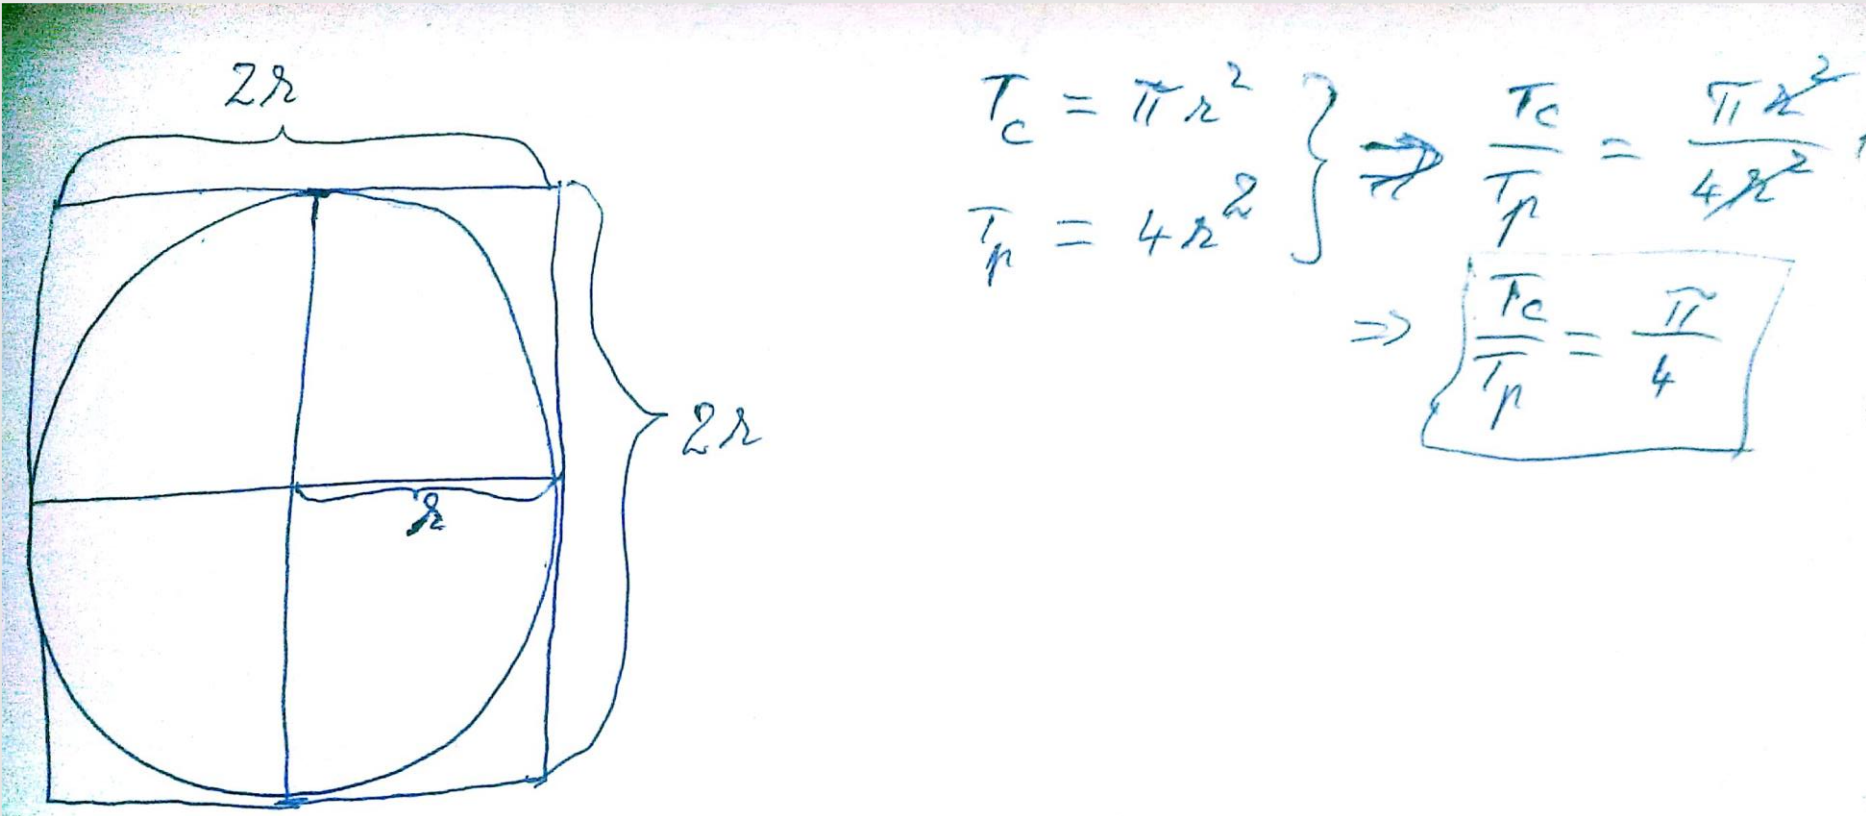 2r
2r
r
T_c = πr²
T_p = 4r²
} ⇒ T_c/T_p = πr²/4r²
⇒ T_c/T_p = π/4